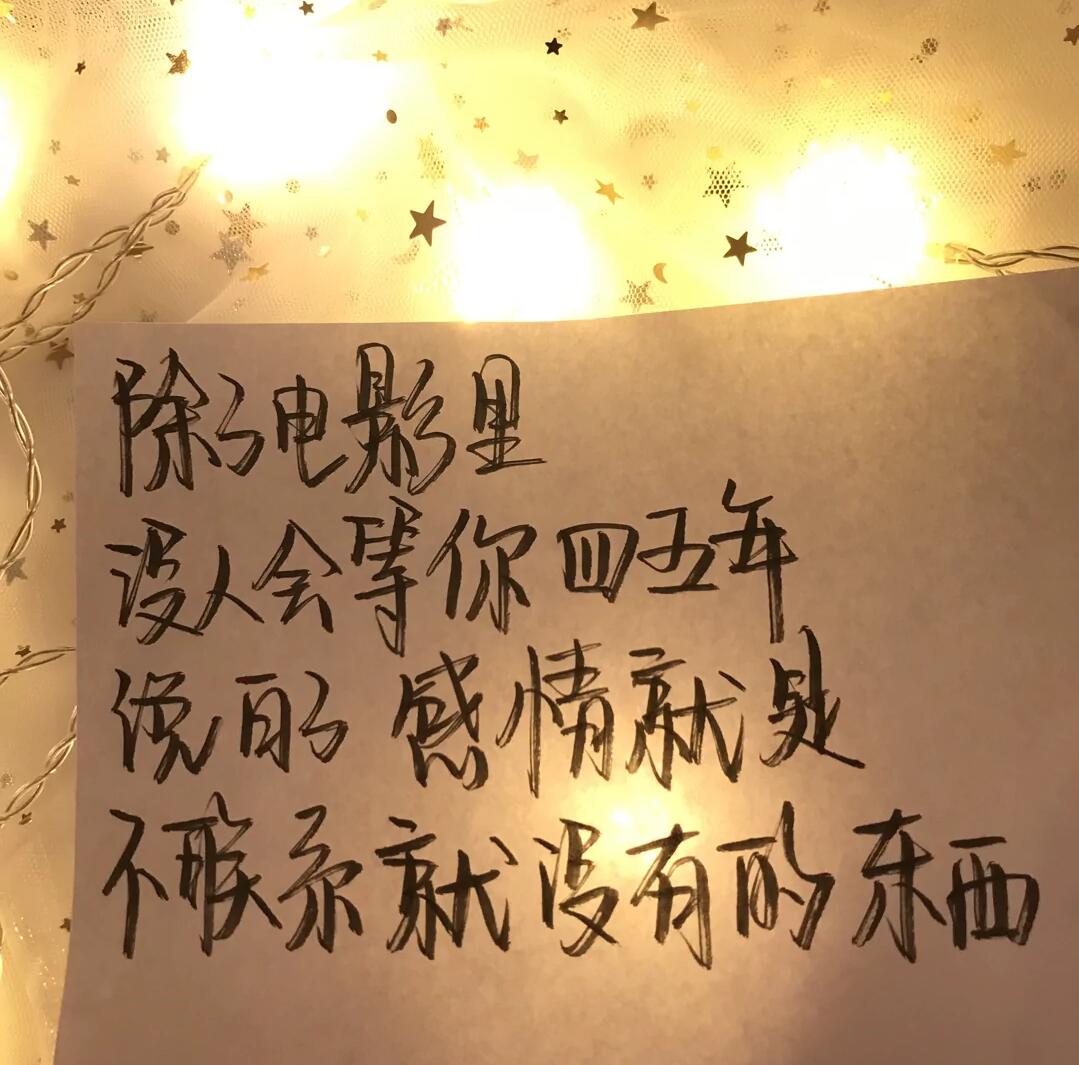 除了电影里
没人会等你四五年
说的 感情就处
不联系就没有的东西